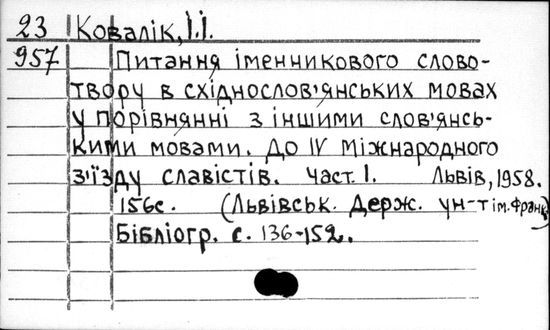 23 Ковалік, І.І.
957 Питання іменникового слово-
твору в східнослов'янських мовах
у порівнянні з іншими слов'янсь-
кими мовами. До IV Міжнародного
з'їзду славістів. Част. І. Львів, 1958.
156с. (Львівськ. Держ. ун-т ім. Франк.)
Бібліогр. с. 136-152.